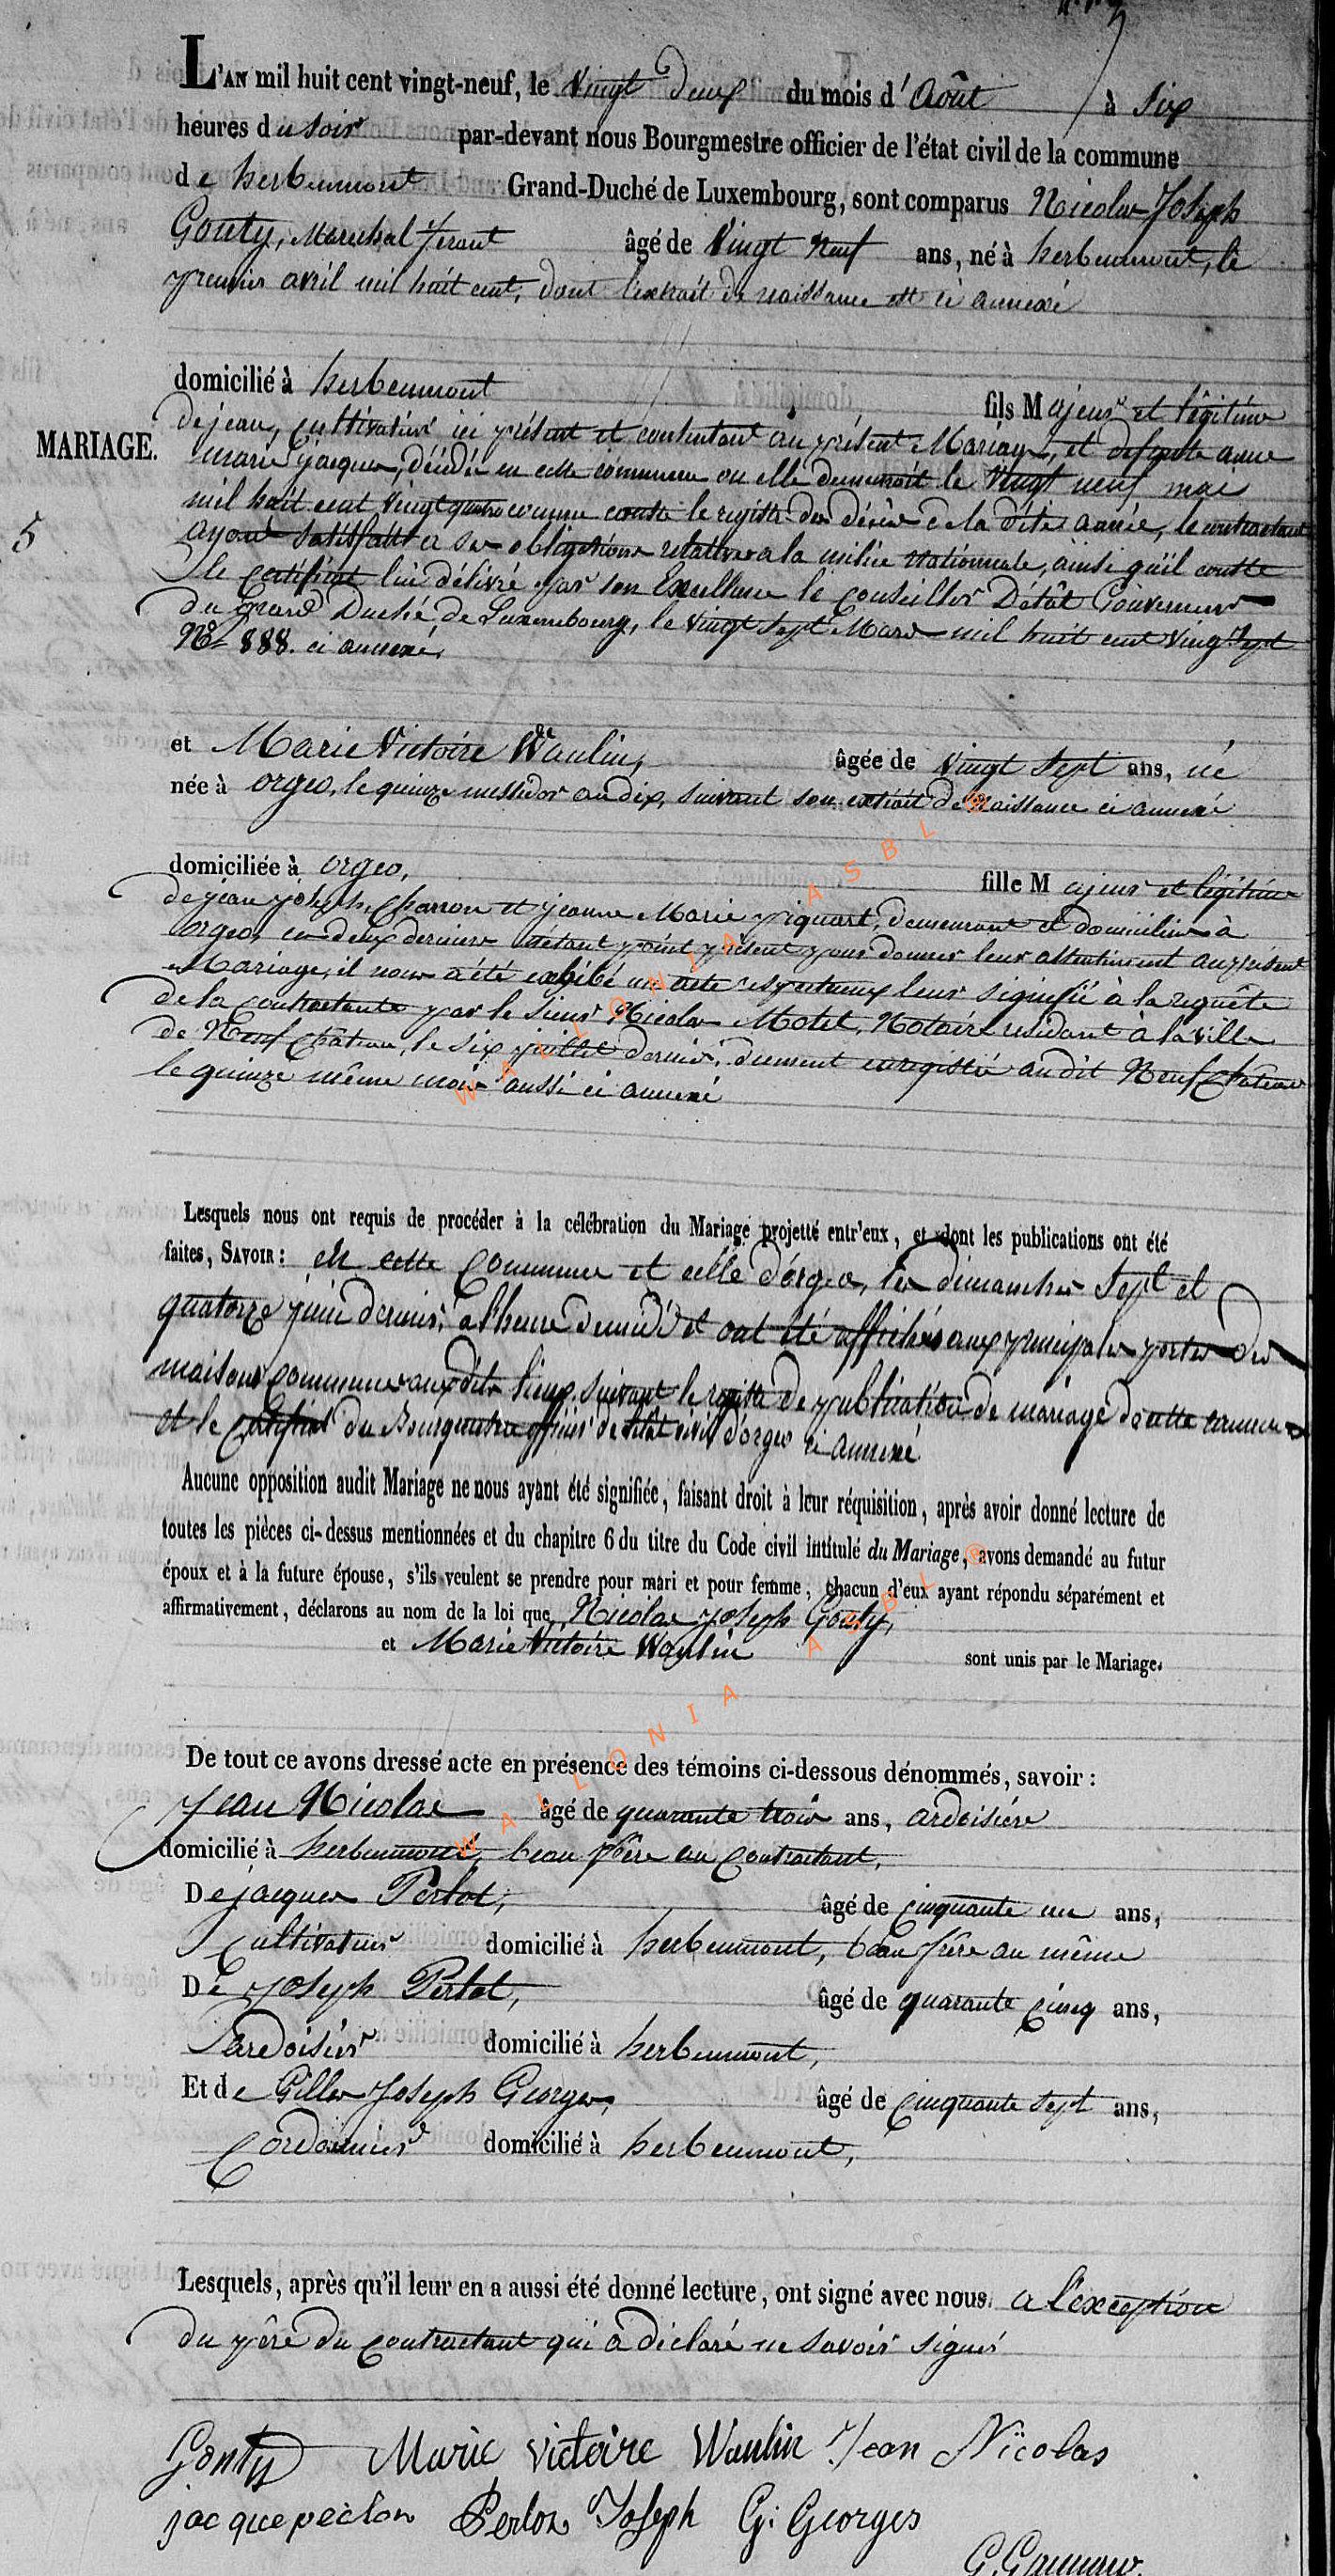 L'AN mil huit cent vingt-neuf, le Vingt Deux du mois d'Août à Six
heures du soir par-devant nous Bourgmestre officier de l'état civil de la commune
de herbeumont Grand-Duché de Luxembourg, sont comparus Nicolas Joseph
Gouty, Marechal ferant âgé de Vingt Neuf ans, né à herbeumont, le
premier avril mil huit cent, dont l'extrait de naissance est ci annexé
domicilié à herbeumont fils Majeur et légitime
MARIAGE.
5
de jean, cultivateur ici présent et consentant au présent Mariage, et defunte anne
marie jacques, décédée en cette commune ou elle demeuroit le Vingt neuf mai
mil huit cent Vingt quatre comme conste le registre des décès de la dite année, le contractant
ayant satisfait a ses obligations relatives a la milice Nationale, ainsi qu'il conste
le certificat lui délivré par son Excellence le Conseiller D'état Gouverneur
du Grand Duché de Luxembourg, le Vingt Sept Mars mil huit cent Vingt Sept
No 888. ci annexé,
et Marie Victoire Waulin, âgée de Vingt Sept ans, né
née à orgeo, le quinze messidor an dix, suivant son extrait de naissance ci annexé
domiciliée à orgeo, fille Majeur et légitime
de jean joseph, Charron et jeanne Marie piquart, demeurant et domiciliés à
orgeo, ces deux derniers n'étant point présent pour donner leur assentiment au présent
Mariage, il nous a été exhibé un acte respectueux leur signifié à la requête
de la contractante par le sieur Nicolas Motet, Notaire residant à la ville
de Neufchâteau, le six juillet dernier, duement enregistré au dit Neufchâteau
le quinze même mois aussi ci annexé
Lesquels nous ont requis de procéder à la célébration du Mariage projetté entr'eux, et dont les publications ont été
faites, SAVOIR: en cette Commune et celle d'orgeo, les dimanches Sept et
quatorze juin dernier, a l'heure de midi et ont été affichés aux principales portes des
maisons Communes aux dits lieux, suivant le registre de publication de mariage de cette commune
et le certificat du Bourgmestre officier de l'état civil d'orgeo ci annexé.
Aucune opposition audit Mariage ne nous ayant été signifiée, faisant droit à leur réquisition, après avoir donné lecture de
toutes les pièces ci-dessus mentionnées et du chapitre 6 du titre du Code civil intitulé du Mariage, avons demandé au futur
époux et à la future épouse, s'ils veulent se prendre pour mari et pour femme, chacun d'eux ayant répondu séparément et
affirmativement, déclarons au nom de la loi que Nicolas Joseph Gouty,
et Marie Victoire Waulin sont unis par le Mariage.
De tout ce avons dressé acte en présence des témoins ci-dessous dénommés, savoir:
Jean Nicolas âgé de quarante trois ans, ardoisiére
domicilié à herbeumont, beau frère au Contractant,
De jacques Perlot, âgé de Cinquante un ans,
Cultivateur domicilié à herbeumont, beau frère au même
De joseph Perlot, âgé de quarante Cinq ans,
ardoisier domicilié à herbeumont,
Et de Gilles Joseph Georges, âgé de Cinquante Sept ans,
Cordonnier domicilié à herbeumont,
Lesquels, après qu'il leur en a aussi été donné lecture, ont signé avec nous. a l'exception
du père du Contractant qui a déclaré ne savoir signer
Gouty Marie victoire Waulin Jean Nicolas
jacque perlon Perlon Joseph G: Georges
WALLONIA ASBL ®
WALLONIA ASBL ®